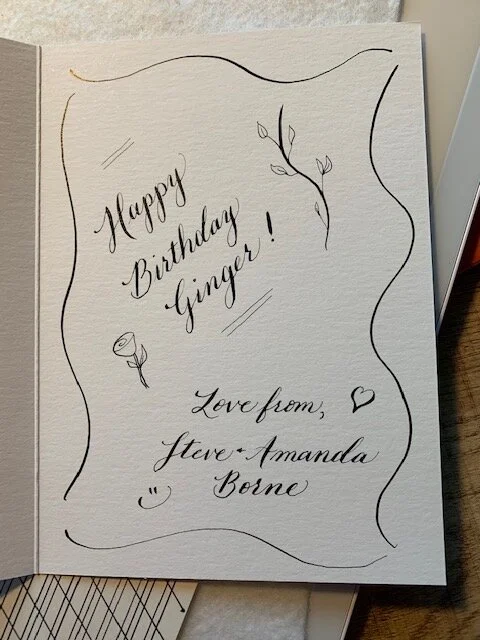 Happy
Birthday
Ginger!
Love from,
Steve + Amanda
Borne